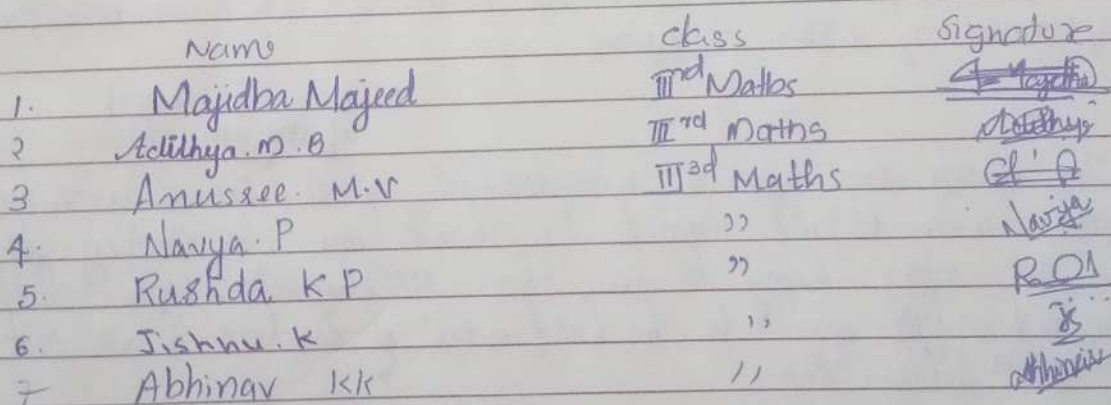 Name class Signature
1. Majidha Majeed IIInd Maths
2 Adithya.M.B IIIrd Maths Adithya
3 Anussree. M.V III3d Maths
4. Navya. P ,, Navya
5. Rushda K P ,,
6. Jishnu. K ,,
7 Abhinav KK ,, Abhinav